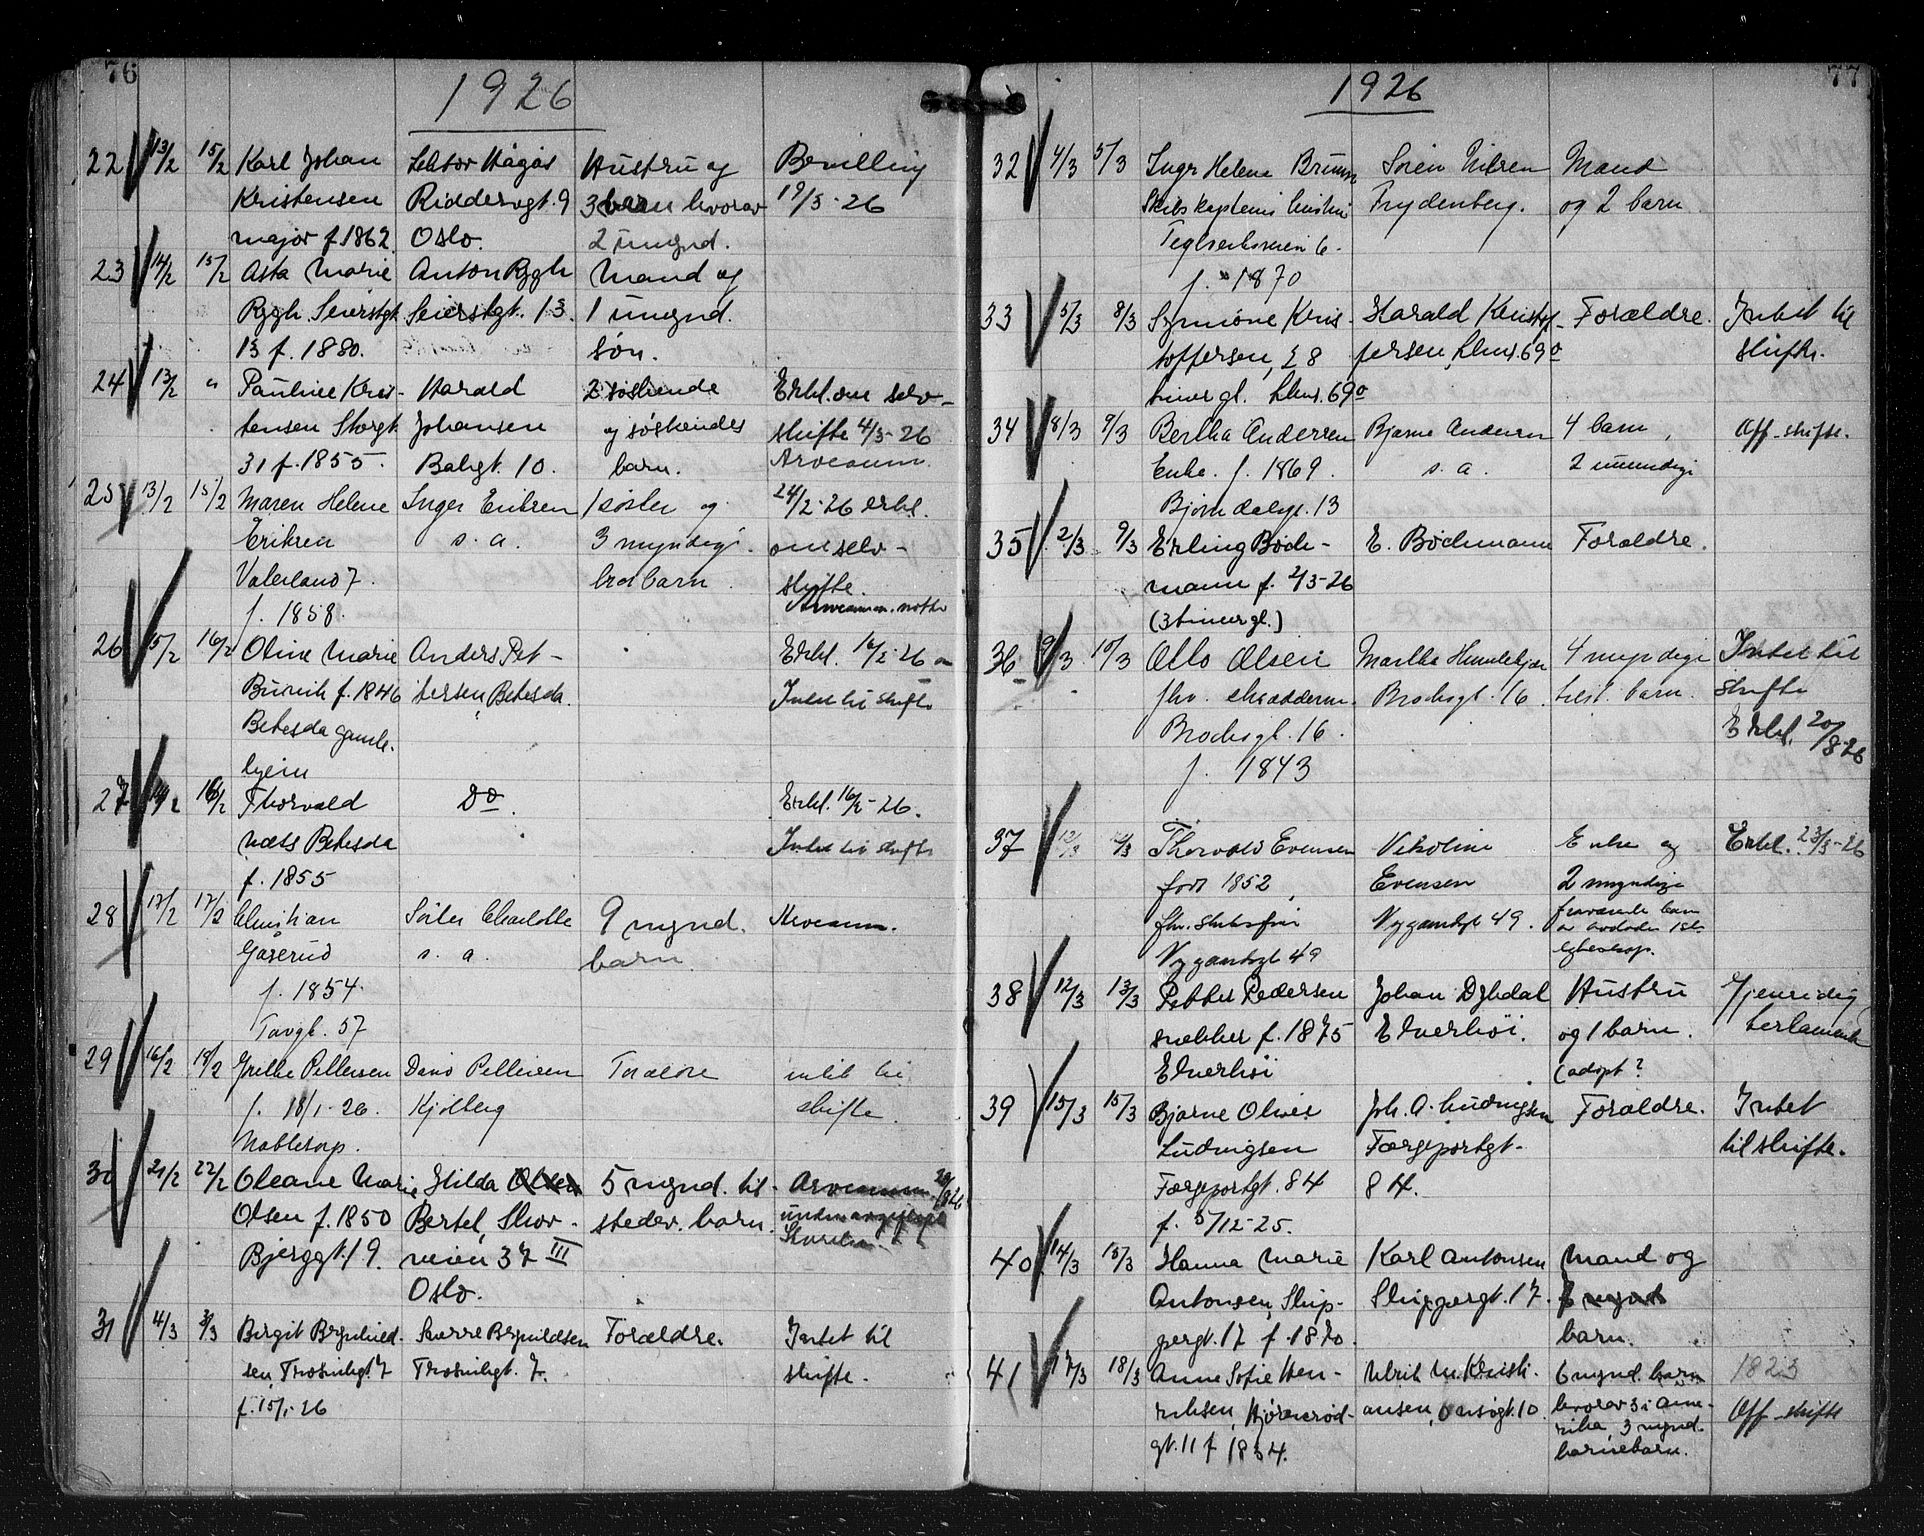 76
1926
22 13/2 15/2 Karl Johan Lektor Hågås Hustru og Bevilling
Kristensen Riddervgt. 9 3 barn hvorav 19/3-26
major f. 1862. Oslo. 2 umynd.
23 14/2 15/2 Asta Marie Anton Rygh Mand og
Rygh Seierstgt. Seierstgt. 13. 1 umynd.
13 f. 1880. søn.
24 13/2 " Pauline Kris- Harald 2 søskende Erkl. om selv-
tensen Storgt. Johansen og søskendes skifte 4/3-26
31 f. 1855. Bakgt. 10. barn. Arveanm.
25 13/2 15/2 Maren Helene Inger Eriksen 1 søster og 24/2-26 erkl.
Eriksen s. a. 3 myndige om selv-
Vaterland 7. brorbarn. skifte.
f. 1858. Arveanm.
26 15/2 16/2 Oline Marie Anders Pet- Erkl. 16/2-26
f. 1846 tersen, Betesda. Intet til skifte
Betesda gamle-
hjem
27 14/2 16/2 Thorvald Do. Erkl. 16/2-26.
Næss Betesda Intet til skifte
f. 1855
28 17/2 17/2 Christian Søster Charlotte 9 mynd. Arveanm.
Gåserud s. a. barn.
f. 1854.
Torvgt. 57
29 16/2 18/2 Grethe Pettersen David Pettersen Foreldre intet til
f. 18/1-26. Kjølberg skifte.
Nabbetorp.
30 21/2 22/2 Oleane Marie Hilda Olsen 5 mynd. til- Arveanm.
Olsen f. 1850 Bertel, Skov- stedev. barn.
Bjerggt. 19. veien 37 III
Oslo.
31 4/3 3/3 Birgit Brynild- Sverre Brynildsen Forældre. Intet til
sen, Trosvikgt. 7 Trosvikgt. 7. skifte.
f. 15/1-26
77
1926
32 4/3 5/3 Inger Helene Bruun Søren Nilsen Mand
Skibskapteins hustru Frydenberg. og 2 barn
Teglverksveien 6.
f. 1870
33 5/3 8/3 Synnøve Kris- Harald Kristof- Forældre. Intet til
toffersen, 28 fersen, Lhus. 69 skifte.
timer gl. Lhus. 69
34 8/3 9/3 Bertha Andersen Bjarne Andersen 4 barn, Off. skifte.
Enke. f. 1869. s. a. 2 umundige
Bjørndalsgt. 13
35 2/3 9/3 Erling Boch- E. Bochmann Forældre.
mann f. 2/3-26
(3 timer gl.)
36 9/3 10/3 Otto Olsen Martha Humlekjær 4 myndige Intet til
fhv. Brochsgt. 16. tilst. barn. skifte
Brochsgt. 16. Erkl. 20/8-26
f. 1843
37 12/3 12/3 Thorvald Evensen Nikoline Enke og Erkl. 23/3-26
født 1852, Evensen 2 myndige
Nygaardsgt 49. fraværende barn
Nygaardsgt 49
38 12/3 13/3 Petter Pedersen Johan Dybdal Hustru Gjensidig
snekker f. 1875 Elverhøi. og 1 barn. testamente
Elverhøi (adopt?
39 15/3 15/3 Bjarne Oliver Joh. A. Ludvigsen Forældre. Intet
Ludvigsen Færgeportgt. til skifte.
Færgeportgt. 84 84.
f. 5/12-25.
40 14/3 15/3 Hanna Marie Karl Antonsen Mand og
Antonsen, Skip- Skippergt. 17. 7 mynd.
pergt. 17 f. 1870. barn.
41 17/3 18/3 Anne Sofie Hen- Ulrik M. Kristi- 6 mynd. barn 1823
riksen, Hjørnerød- ansen, Onsøgt. 10. hvorav 3 i Ame- Off. skifte
gt. 11 f 1834. rika, 3 mynd.
barnebarn.